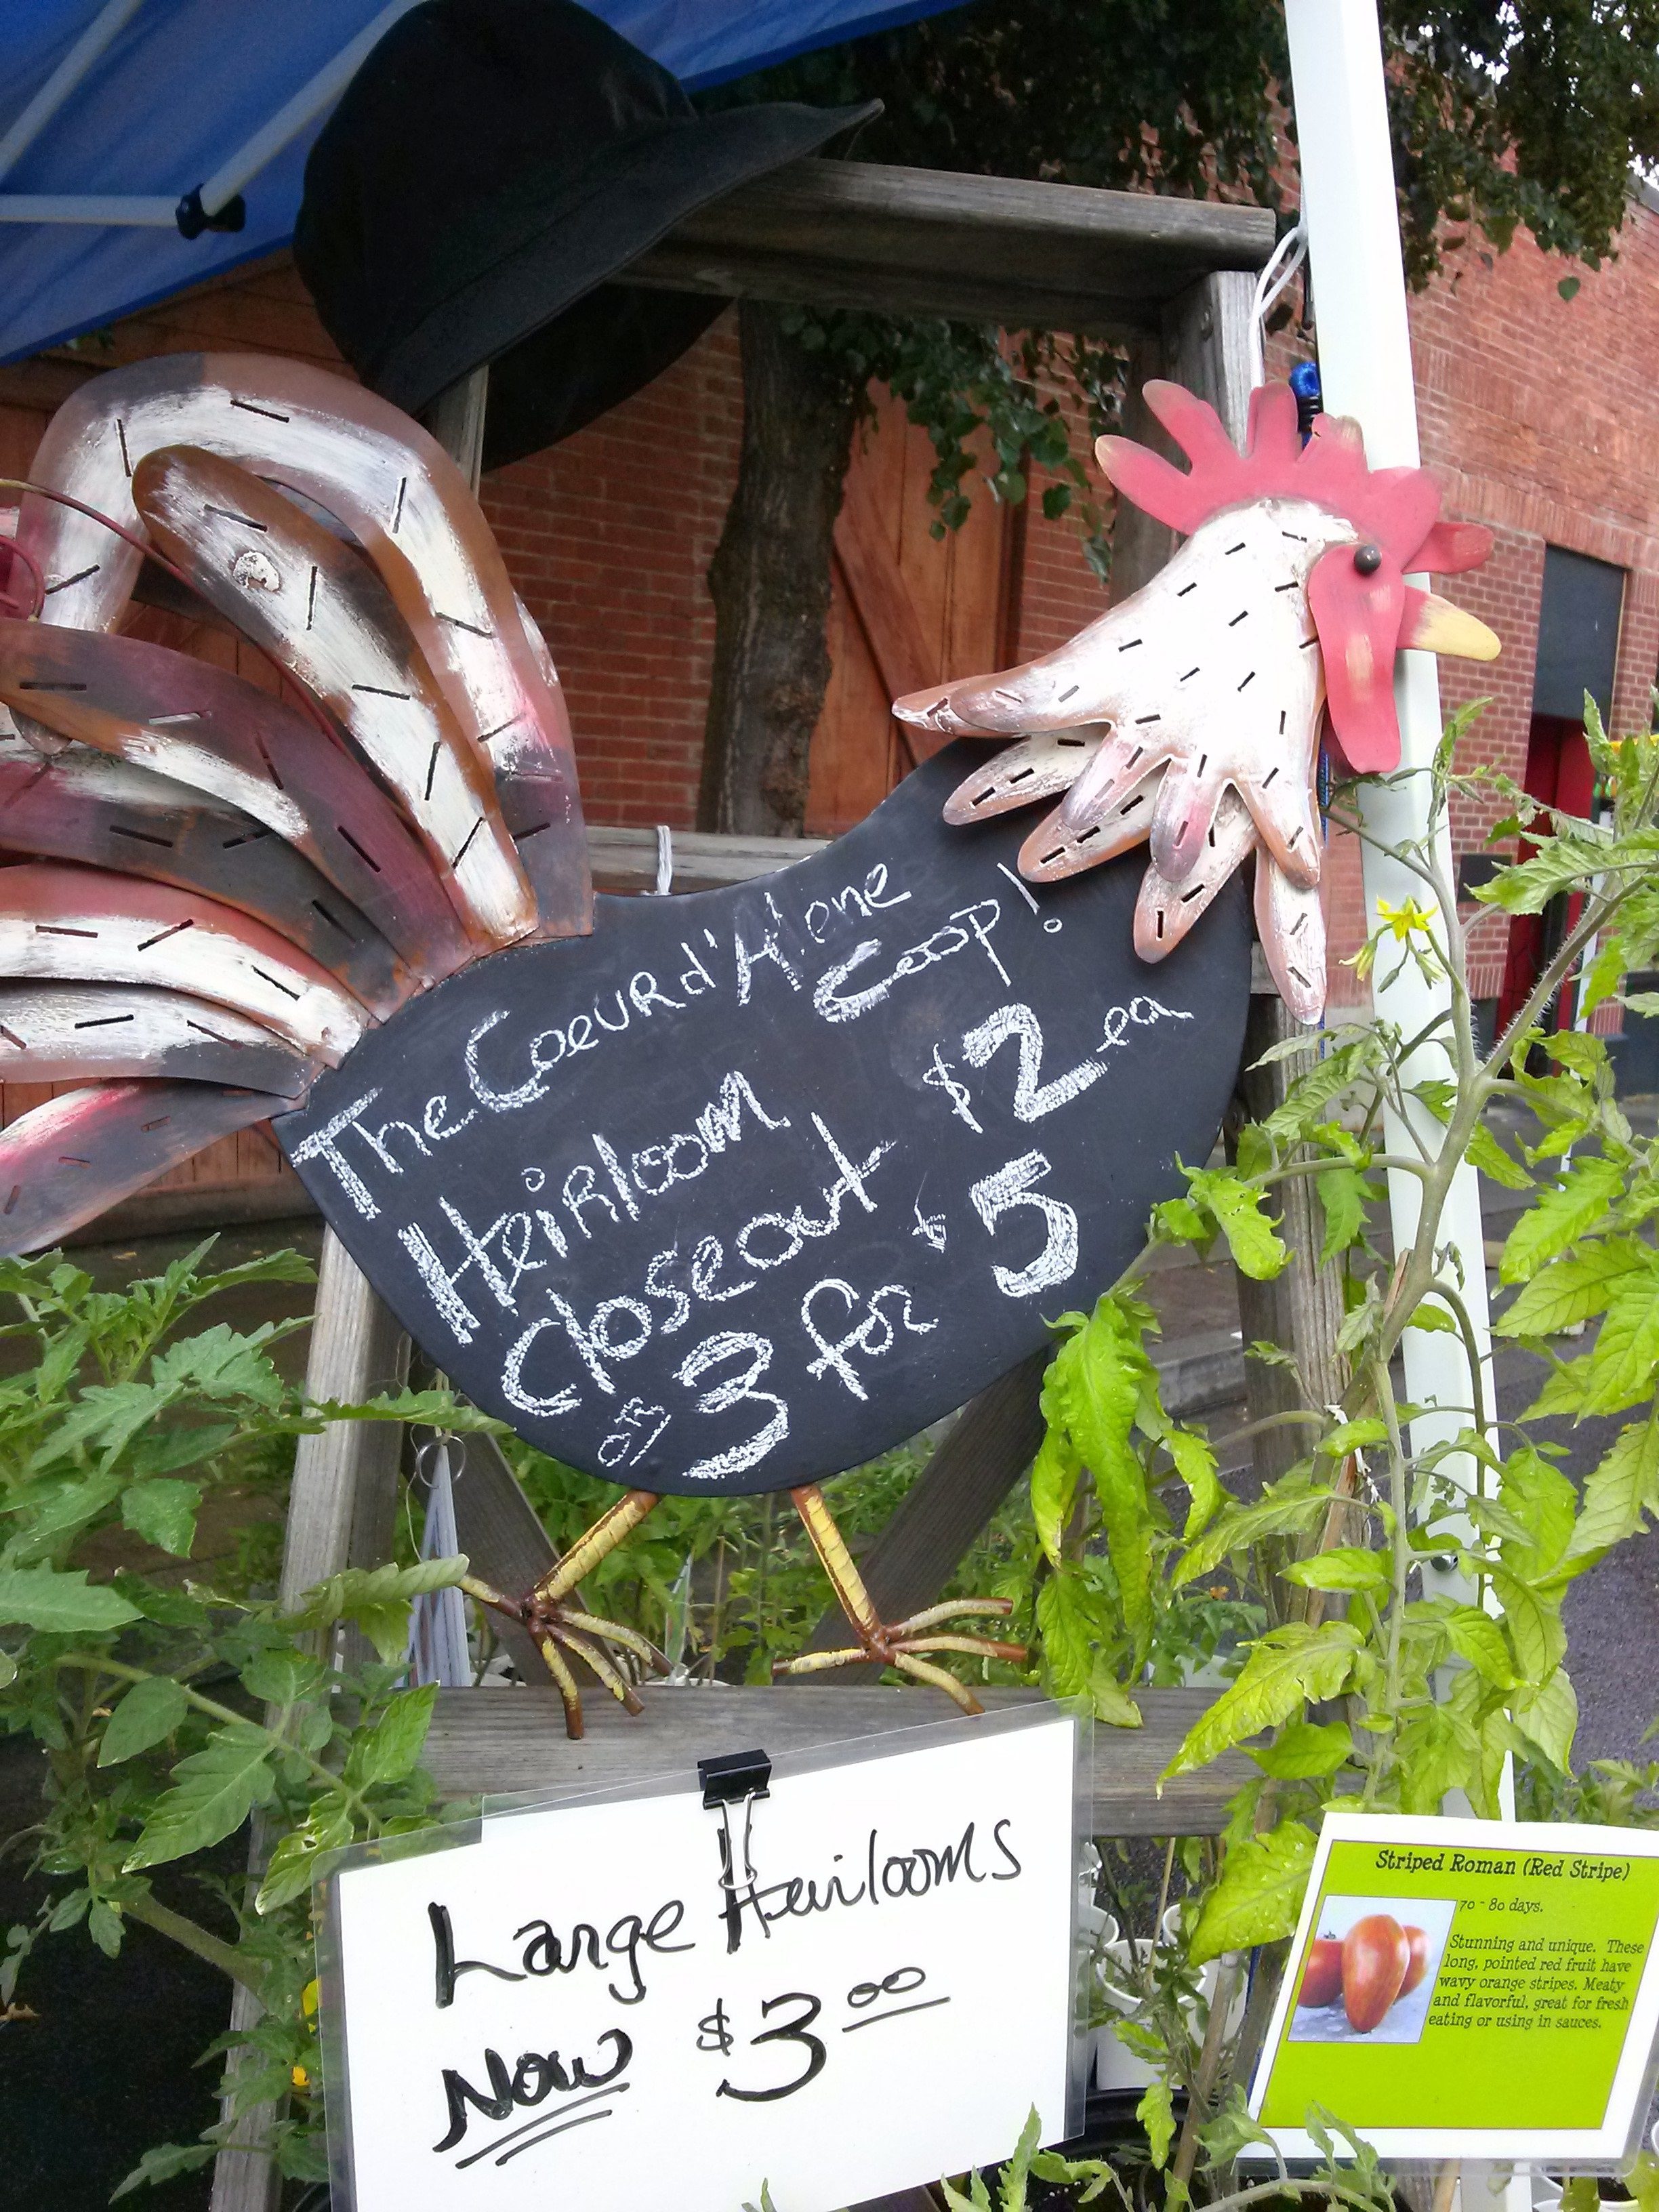 The Coeur d'Alene
Coop!
Heirloom
Closeout $2 ea
or 3 for $5
Large Heirlooms
Now $3.00
Striped Roman (Red Stripe)
70 - 80 days.
Stunning and unique. These
long, pointed red fruit have
wavy orange stripes. Meaty
and flavorful, great for fresh
eating or using in sauces.